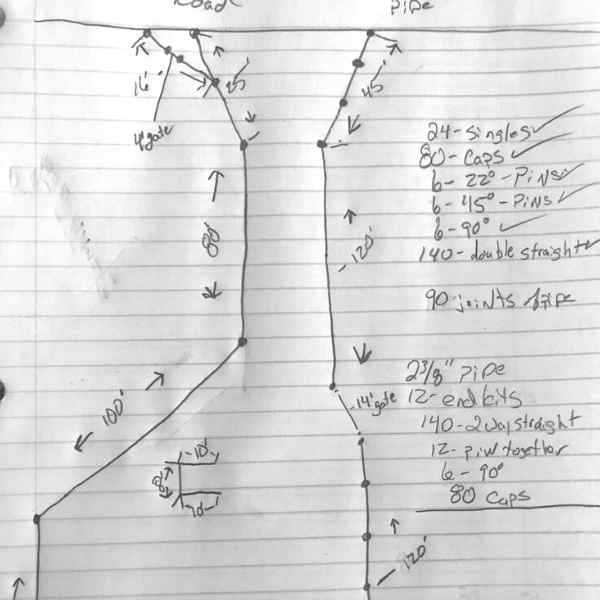 Road
Pipe
16'
4' gate
45'
24-singles
80-Caps
6-22°-Pins
6-45°-Pins
6-90°
140-double straight
80'
120'
90-joints pipe
2 3/8" pipe
14' gate
12-end bits
100'
140-2way straight
12-pin together
10'
6-90°
8'
80 Caps
10'
120'